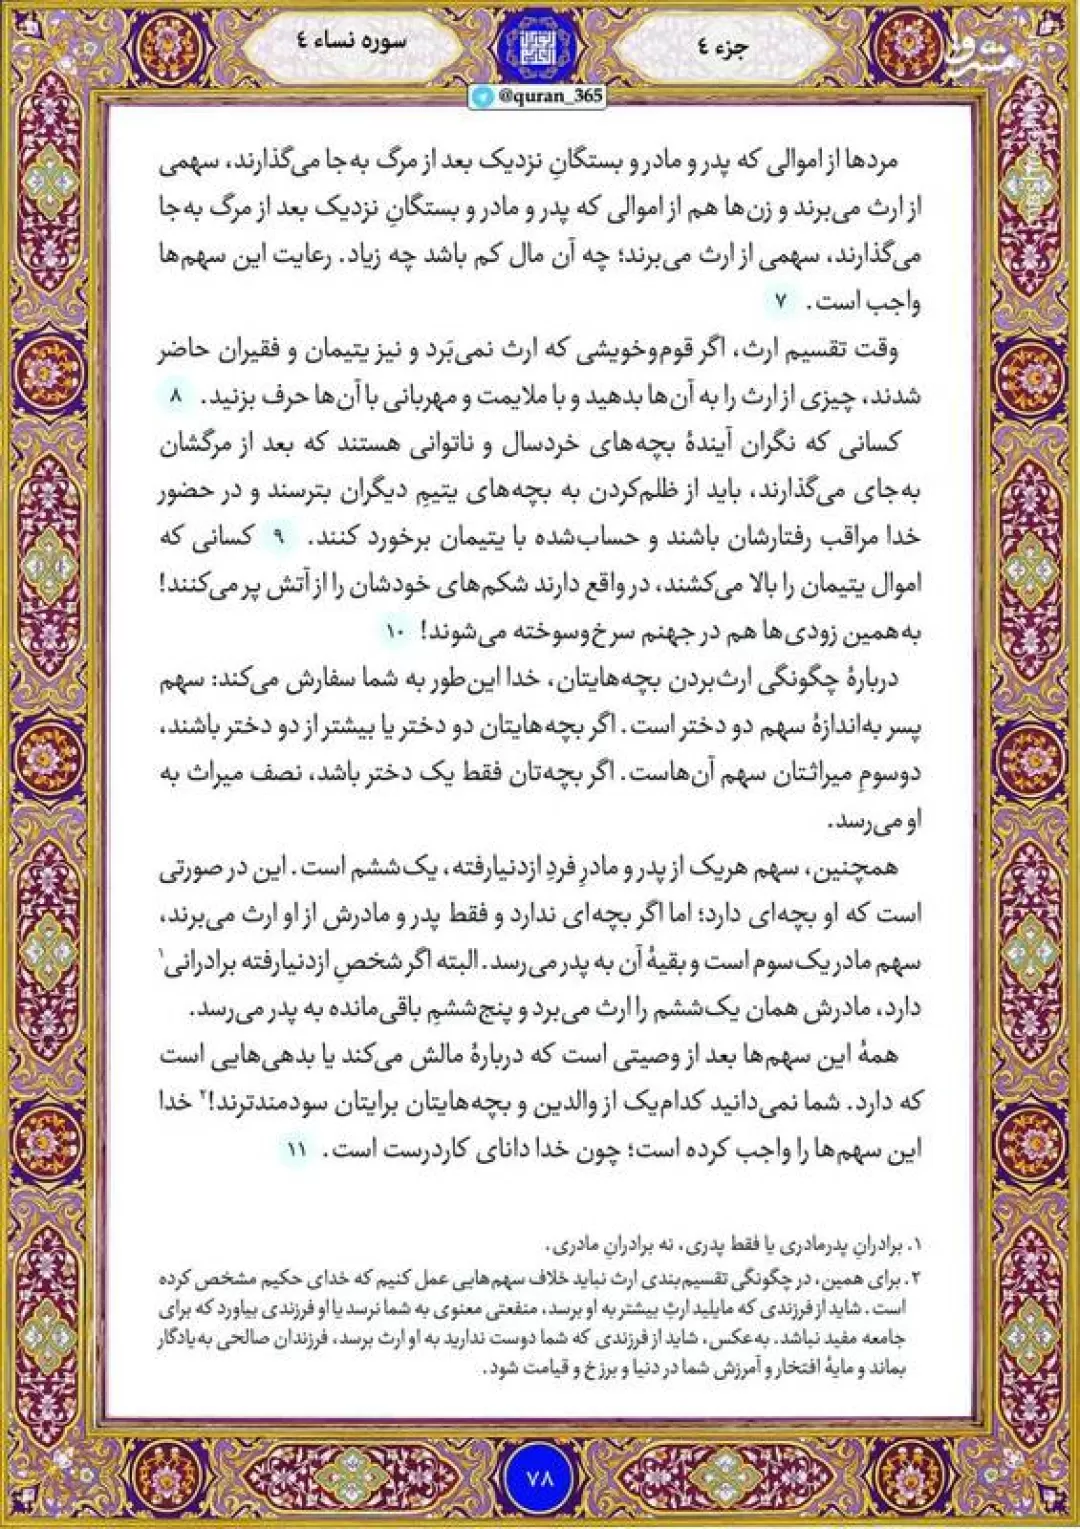 جزء ٤
سوره نساء ٤
مشرق
@quran_365
مردها از اموالی که پدر و مادر و بستگانِ نزدیک بعد از مرگ به‌جا می‌گذارند، سهمی
از ارث می‌برند و زن‌ها هم از اموالی که پدر و مادر و بستگانِ نزدیک بعد از مرگ به‌جا
می‌گذارند، سهمی از ارث می‌برند؛ چه آن مال کم باشد چه زیاد. رعایت این سهم‌ها
واجب است. ۷
وقت تقسیم ارث، اگر قوم‌وخویشی که ارث نمی‌بَرد و نیز یتیمان و فقیران حاضر
شدند، چیزی از ارث را به آن‌ها بدهید و با ملایمت و مهربانی با آن‌ها حرف بزنید. ۸
کسانی که نگران آیندهٔ بچه‌های خردسال و ناتوانی هستند که بعد از مرگشان
به‌جای می‌گذارند، باید از ظلم‌کردن به بچه‌های یتیمِ دیگران بترسند و در حضور
خدا مراقب رفتارشان باشند و حساب‌شده با یتیمان برخورد کنند. ۹ کسانی که
اموال یتیمان را بالا می‌کشند، در واقع دارند شکم‌های خودشان را از آتش پر می‌کنند!
به‌همین زودی‌ها هم در جهنم سرخ‌وسوخته می‌شوند! ۱۰
دربارهٔ چگونگی ارث‌بردن بچه‌هایتان، خدا این‌طور به شما سفارش می‌کند: سهم
پسر به‌اندازهٔ سهم دو دختر است. اگر بچه‌هایتان دو دختر یا بیشتر از دو دختر باشند،
دوسومِ میراثتان سهم آن‌هاست. اگر بچه‌تان فقط یک دختر باشد، نصف میراث به
او می‌رسد.
همچنین، سهم هریک از پدر و مادرِ فردِ ازدنیارفته، یک‌ششم است. این در صورتی
است که او بچه‌ای دارد؛ اما اگر بچه‌ای ندارد و فقط پدر و مادرش از او ارث می‌برند،
سهم مادر یک‌سوم است و بقیهٔ آن به پدر می‌رسد. البته اگر شخصِ ازدنیارفته برادرانی۱
دارد، مادرش همان یک‌ششم را ارث می‌برد و پنج‌ششمِ باقی‌مانده به پدر می‌رسد.
همهٔ این سهم‌ها بعد از وصیتی است که دربارهٔ مالش می‌کند یا بدهی‌هایی است
که دارد. شما نمی‌دانید کدام‌یک از والدین و بچه‌هایتان برایتان سودمندترند!۲ خدا
این سهم‌ها را واجب کرده است؛ چون خدا دانای کاردرست است. ۱۱
۱. برادرانِ پدرمادری یا فقط پدری، نه برادرانِ مادری.
۲. برای همین، در چگونگی تقسیم‌بندی ارث نباید خلاف سهم‌هایی عمل کنیم که خدای حکیم مشخص کرده
است. شاید از فرزندی که مایلید ارثِ بیشتر به او برسد، منفعتی معنوی به شما نرسد یا او فرزندی بیاورد که برای
جامعه مفید نباشد. به‌عکس، شاید از فرزندی که شما دوست ندارید به او ارث برسد، فرزندان صالحی به‌یادگار
بماند و مایهٔ افتخار و آمرزش شما در دنیا و برزخ و قیامت شود.
۷۸